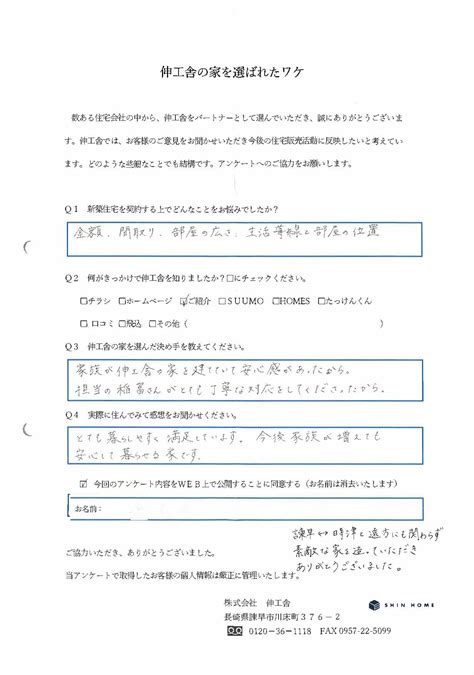 伸工舎の家を選ばれたワケ
数ある住宅会社の中から、伸工舎をパートナーとして選んでいただき、誠にありがとうございま
す。伸工舎では、お客様のご意見をお聞かせいただき今後の住宅販売活動に反映したいと考えてい
ます。どのような些細なことでも結構です。アンケートへのご協力をお願いします。
Q1 新築住宅を契約する上でどんなことをお悩みでしたか?
金額、間取り、部屋の広さ、生活導線と部屋の位置
Q2 何がきっかけで伸工舎を知りましたか?□にチェックください。
□チラシ □ホームページ ☑ご紹介 □SUUMO □HOMES □たっけんくん
□口コミ □飛込 □その他( )
Q3 伸工舎の家を選んだ決め手を教えてください。
家族が伸工舎の家を建てていて安心感があったから。
担当の稲富さんがとても丁寧な対応をしてくださったから。
Q4 実際に住んでみて感想をお聞かせください。
とても暮らしやすく満足しています。今後家族が増えても
安心して暮らせる家です。
☑ 今回のアンケート内容をWEB上で公開することに同意する(お名前は消去いたします)
お名前:
諫早⇔時津と遠方にも関わらず
素敵な家を造っていただき
ありがとうございました。
ご協力いただき、ありがとうございました。
当アンケートで取得したお客様の個人情報は厳正に管理いたします。
株式会社 伸工舎
長崎県諫早市川床町376-2
0120-36-1118 FAX 0957-22-5099
SHIN HOME